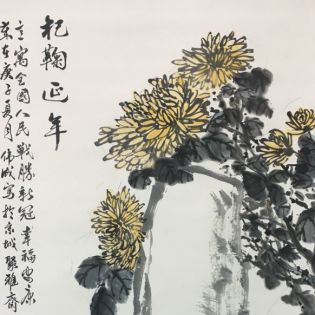 杞鞠延年
立寓全國人民戰勝新冠幸福安康
歲在庚子夏月偉成寫於京城聚雅齋